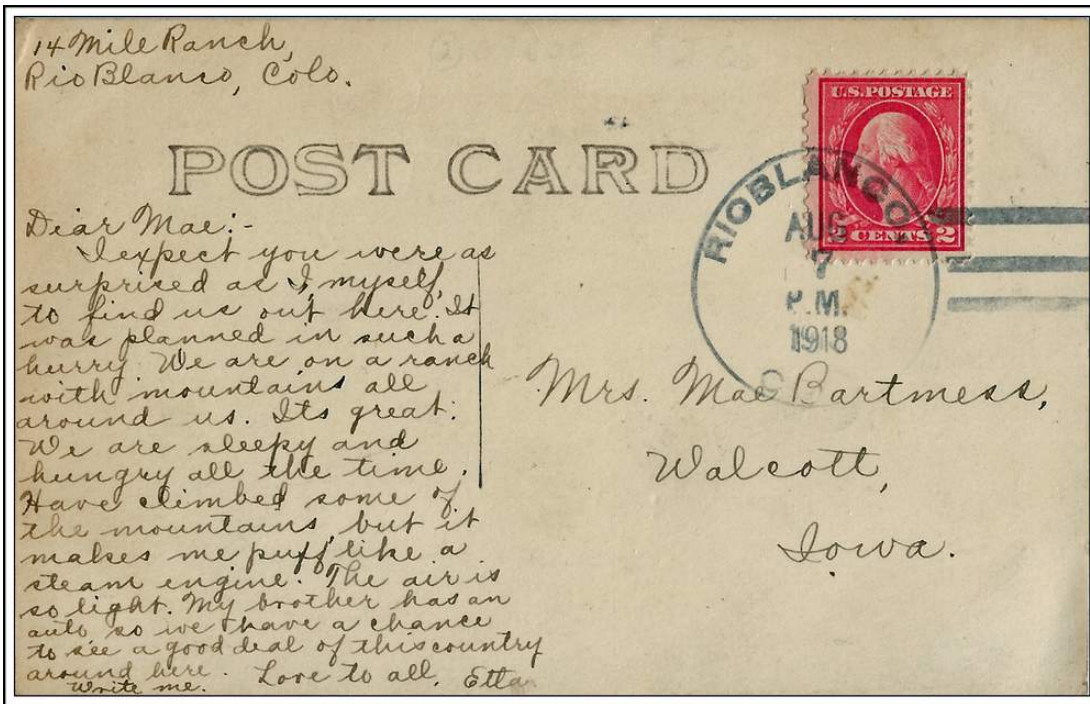 14 Mile Ranch,
Rio Blanco, Colo.
POST CARD
U.S. POSTAGE
2 CENTS 2
RIO BLANCO
AUG
7
P.M.
1918
Dear Mae:-
I expect you were as
surprised as I, myself,
to find us out here. It
was planned in such a
hurry. We are on a ranch
with mountains all
around us. Its great.
We are sleepy and
hungry all the time.
Have climbed some of
the mountains, but it
makes me puff like a
steam engine. The air is
so light. My brother has an
auto so we have a chance
to see a good deal of this country
around here. Love to all, Etta
Write me.
Mrs. Mae Bartmess,
Walcott,
Iowa.